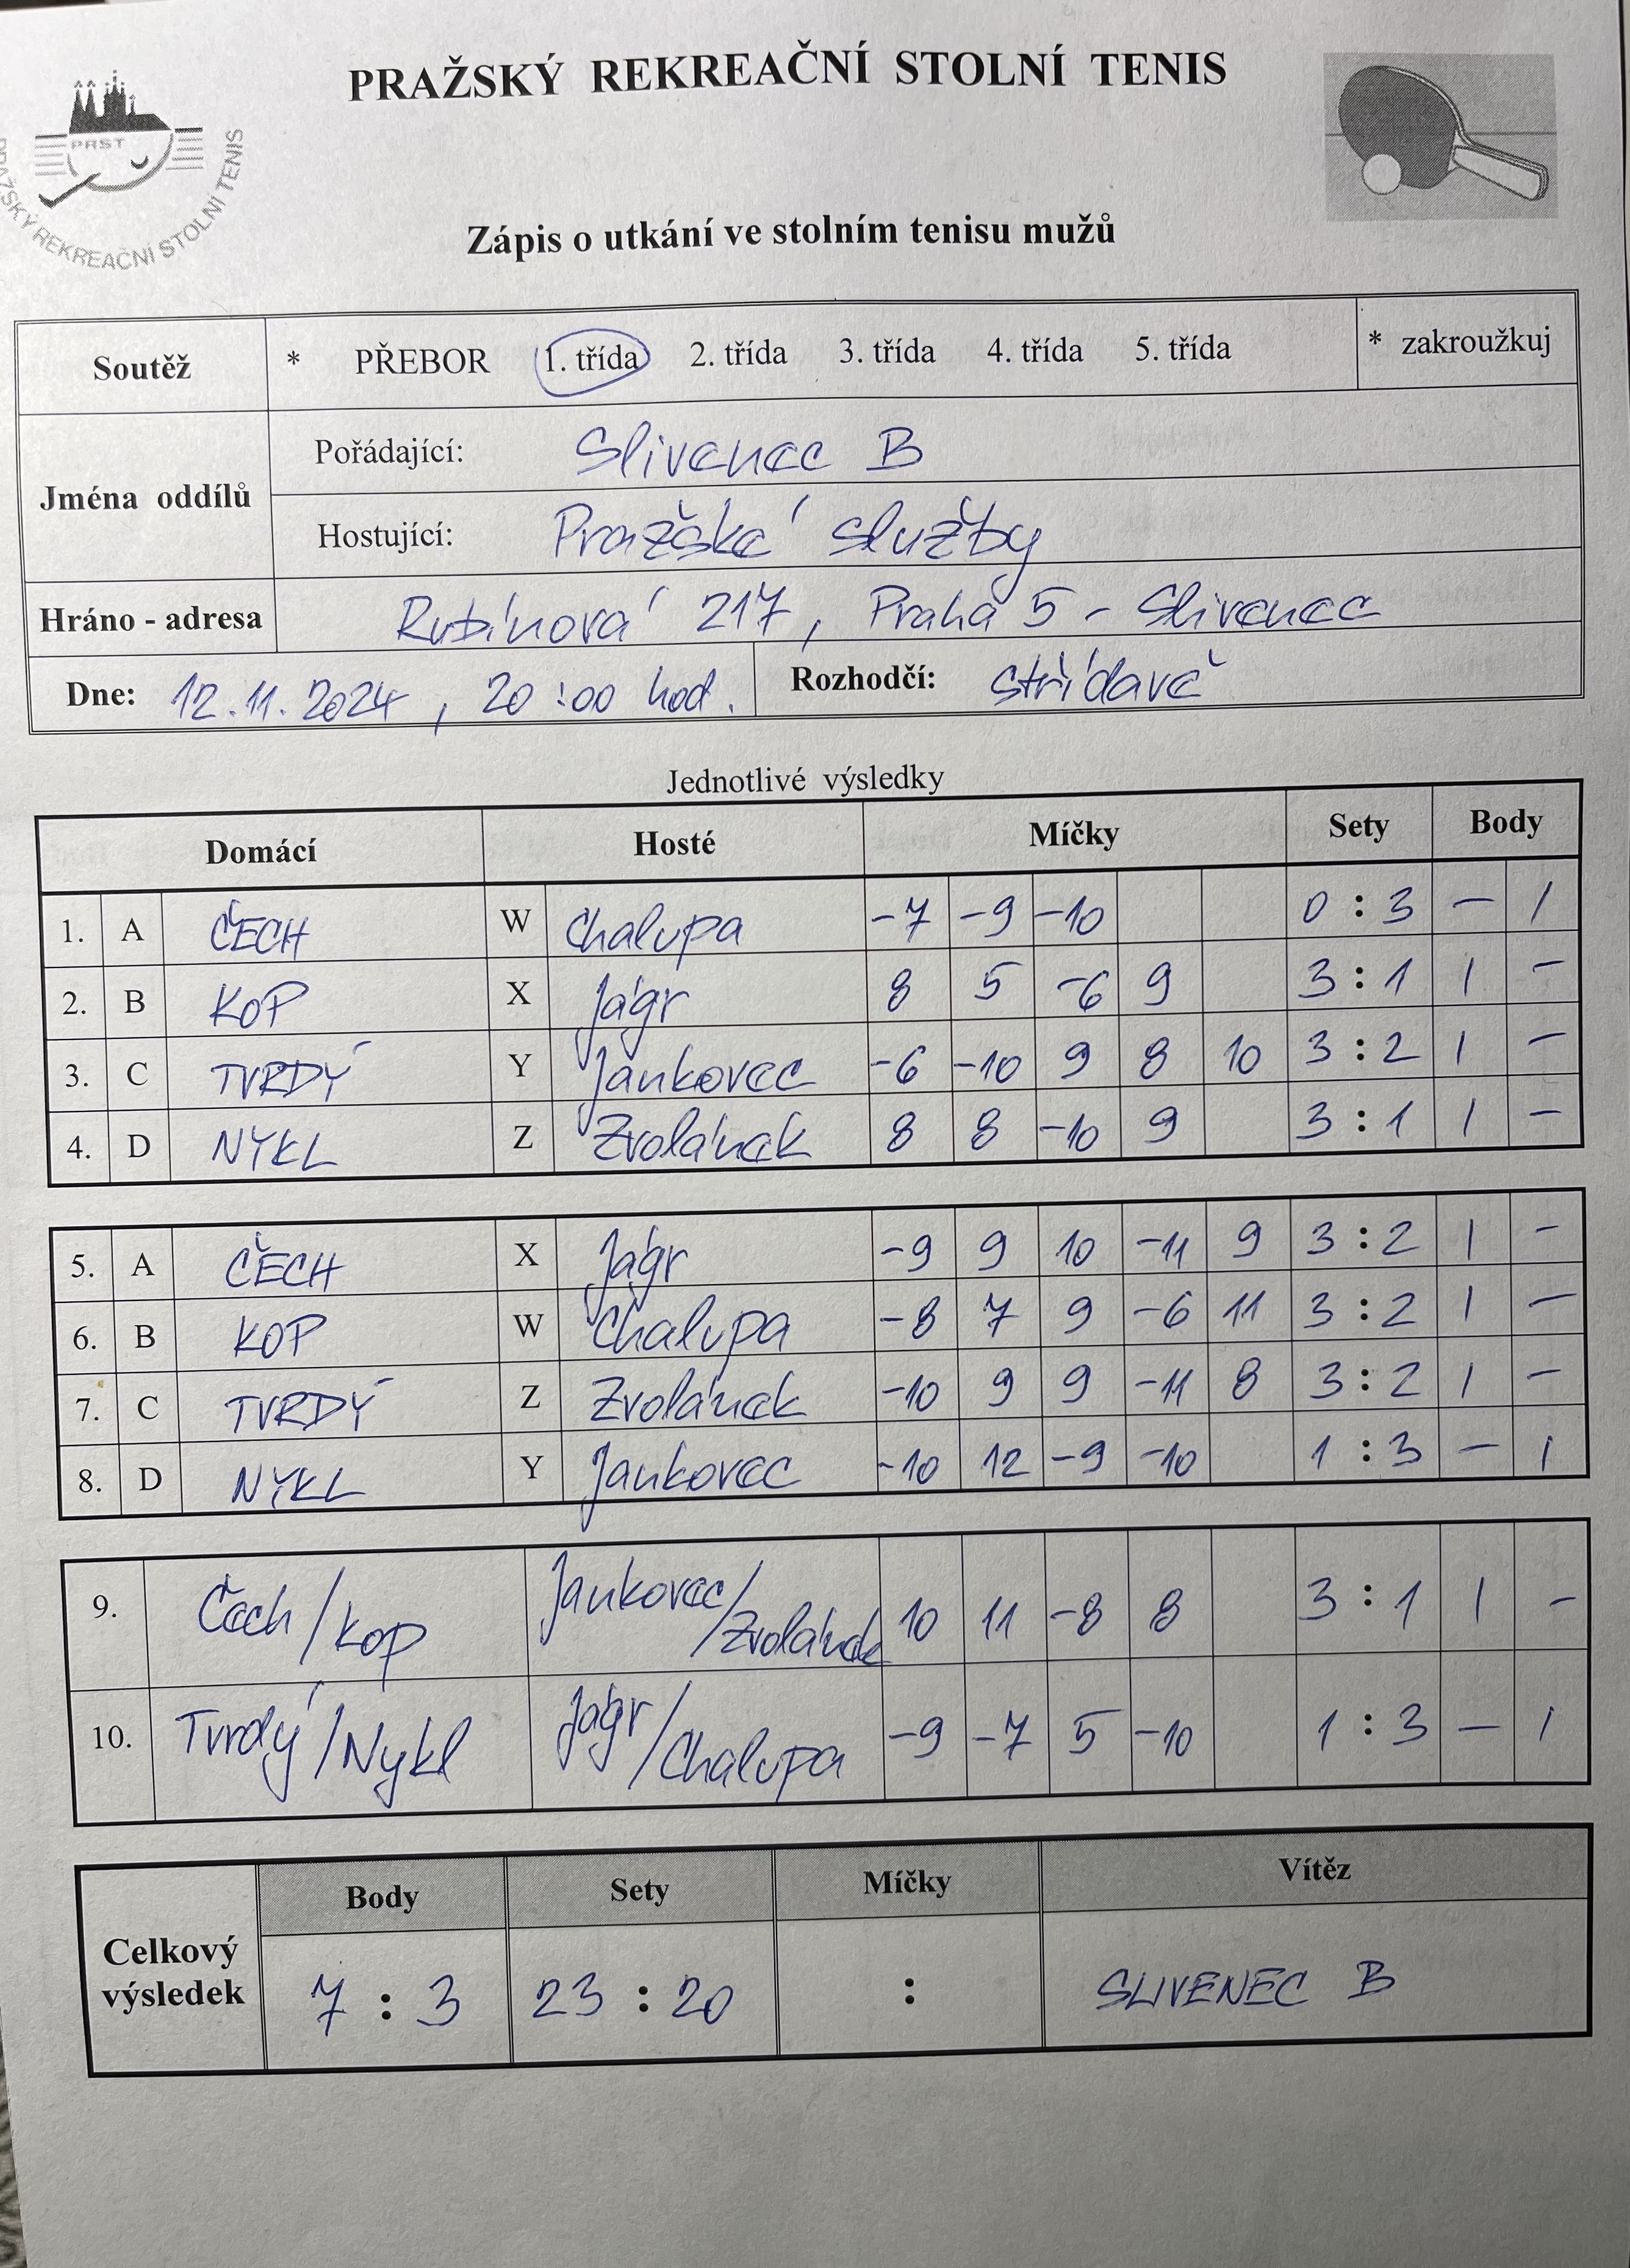 PRAŽSKÝ REKREAČNÍ STOLNÍ TENIS
PRST
PRAŽSKÝ REKREAČNÍ STOLNÍ TENIS
Zápis o utkání ve stolním tenisu mužů
Soutěž * PŘEBOR 1. třída 2. třída 3. třída 4. třída 5. třída * zakroužkuj
Jména oddílů
Pořádající: Slivenec B
Hostující: Pražské služby
Hráno - adresa Rubínová 217, Praha 5 - Slivenec
Dne: 12.11.2024, 20:00 hod. Rozhodčí: střídavě
Jednotlivé výsledky
Domácí Hosté Míčky Sety Body
1. A ČECH W Chalupa -7 -9 -10 0 : 3 - 1
2. B KOP X Jágr 8 5 -6 9 3 : 1 1 -
3. C TVRDÝ Y Jankovec -6 -10 9 8 10 3 : 2 1 -
4. D NYKL Z Zvolánek 8 8 -10 9 3 : 1 1 -
5. A ČECH X Jágr -9 9 10 -11 9 3 : 2 1 -
6. B KOP W Chalupa -8 7 9 -6 11 3 : 2 1 -
7. C TVRDÝ Z Zvolánek -10 9 9 -11 8 3 : 2 1 -
8. D NYKL Y Jankovec -10 12 -9 -10 1 : 3 - 1
9. Čech/Kop Jankovec/Zvolánek 10 11 -8 8 3 : 1 1 -
10. Tvrdý/Nykl Jágr/Chalupa -9 -7 5 -10 1 : 3 - 1
Celkový výsledek
Body Sety Míčky Vítěz
7 : 3 23 : 20 : SLIVENEC B